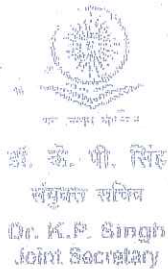 डा. के. पी. सिंह
संयुक्त सचिव
Dr. K.P. Singh
Joint Secretary